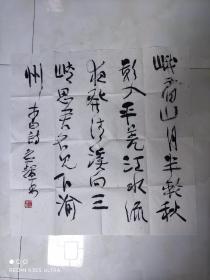 峨眉山月半輪秋
影入平羌江水流
夜發清溪向三
峽思君不見下渝
州 李白詩